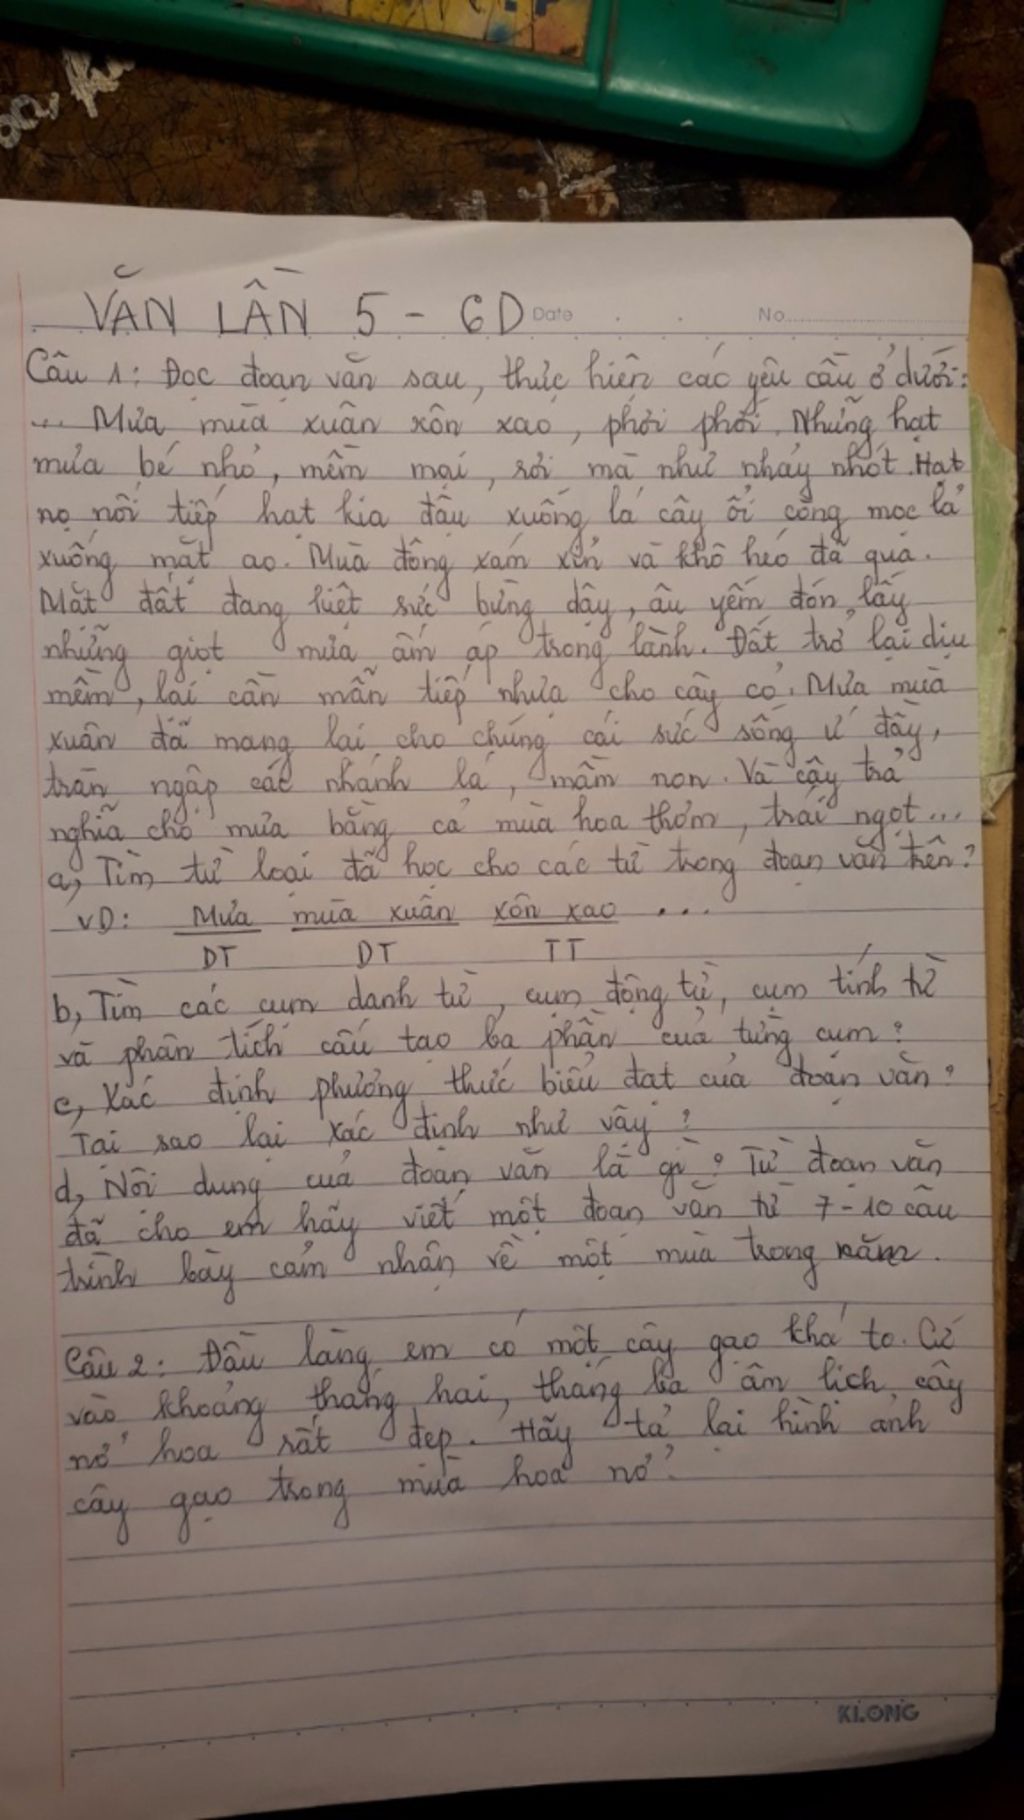 VĂN LẦN 5 - 6D Date No
Câu 1: Đọc đoạn văn sau, thực hiện các yêu cầu ở dưới:
... Mưa mùa xuân xôn xao, phơi phới. Những hạt
mưa bé nhỏ, mềm mại, rơi mà như nhảy nhót. Hạt
nọ nối tiếp hạt kia đậu xuống lá cây ổi cong mọc lả
xuống mặt ao. Mùa đông xám xỉn và khô héo đã qua.
Mặt đất đang kiệt sức bừng dậy, âu yếm đón lấy
những giọt mưa ấm áp trong lành. Đất trở lại dịu
mềm, lại cần mẫn tiếp nhựa cho cây cỏ. Mưa mùa
xuân đã mang lại cho chúng cái sức sống ứ đầy,
tràn ngập các nhánh lá, mầm non. Và cây trả
nghĩa cho mưa bằng cả mùa hoa thơm, trái ngọt...
a, Tìm từ loại đã học cho các từ trong đoạn văn trên?
VD: Mưa mùa xuân xôn xao ...
DT DT TT
b, Tìm các cụm danh từ, cụm động từ, cụm tính từ
và phân tích cấu tạo ba phần của từng cụm?
c, Xác định phương thức biểu đạt của đoạn văn?
Tại sao lại xác định như vậy?
d, Nội dung của đoạn văn là gì? Từ đoạn văn
đã cho em hãy viết một đoạn văn từ 7-10 câu
trình bày cảm nhận về một mùa trong năm.
Câu 2: Đầu làng em có một cây gạo khá to. Cứ
vào khoảng tháng hai, tháng ba âm lịch cây
nở hoa rất đẹp. Hãy tả lại hình ảnh
cây gạo trong mùa hoa nở?
KLONG